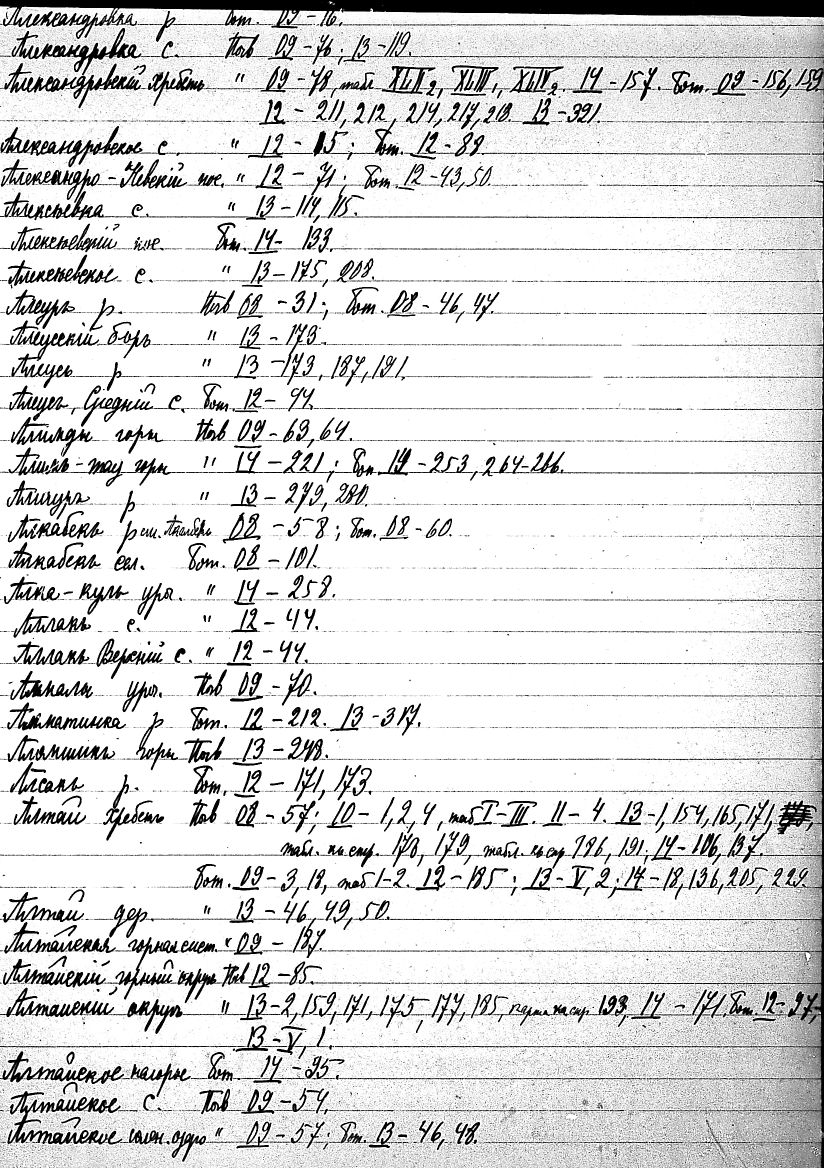 Александровка р Бот. 09-16.
Александровка с. Почв 09-76; 13-119.
Александровскій хребетъ " 09-78, табл XLII₂, XLIII₁, XLIV₂. 14-157. Бот. 09-156, 159
12-211, 212, 214, 217, 218. 13-391.
Александровское с. " 12-85; Бот. 12-89.
Александро-Невскій пос. " 12-71; Бот. 12-43, 50.
Алексѣевка с. " 13-114, 115.
Алексѣевскій пос. Бот. 14-133.
Алексѣевское с. " 13-175, 208.
Алеуръ р. Почв 08-31; Бот. 08-46, 47.
Алеусскій боръ " 13-173.
Алеусъ р " 13-173, 187, 191.
Алеусъ, Средній с. Бот. 12-44.
горы Почв 09-63, 64.
тау горы " 14-221; Бот. 14-253, 264-266.
Аличуръ р " 13-279, 280.
Алкабекъ р см. 08-58; Бот. 08-60.
Алкабекъ сел. Бот. 08-101.
Алка-куль уроч. " 14-258.
Аллакъ с. " 12-44.
Аллакъ Верхній с. " 12-44.
уроч. Почв 09-70.
Алматинка р Бот. 12-212. 13-317.
горы Почв 13-248.
р. Бот. 12-171, 173.
Алтай хребетъ Почв 08-57; 10-1, 2, 4, таб I-III. 11-4. 13-1, 154, 165, 171,
табл. къ стр. 178, 179, табл. къ стр 186, 191; 14-106, 137.
Бот. 09-3, 18, таб 1-2. 12-185; 13-V, 2; 14-18, 136, 205, 229.
Алтай дер. " 13-46, 49, 50.
Алтайская горная сист. " 09-187.
Алтайскій горный округъ Почв 12-85.
Алтайскій округъ " 13-2, 159, 171, 175, 177, 185, карта къ стр 193, 14-171. Бот. 12-97,
13-V, 1.
Алтайское нагорье Бот. 14-95.
Алтайское с. Почв 09-54.
Алтайское солен. озеро " 09-57; Бот. 13-46, 48.